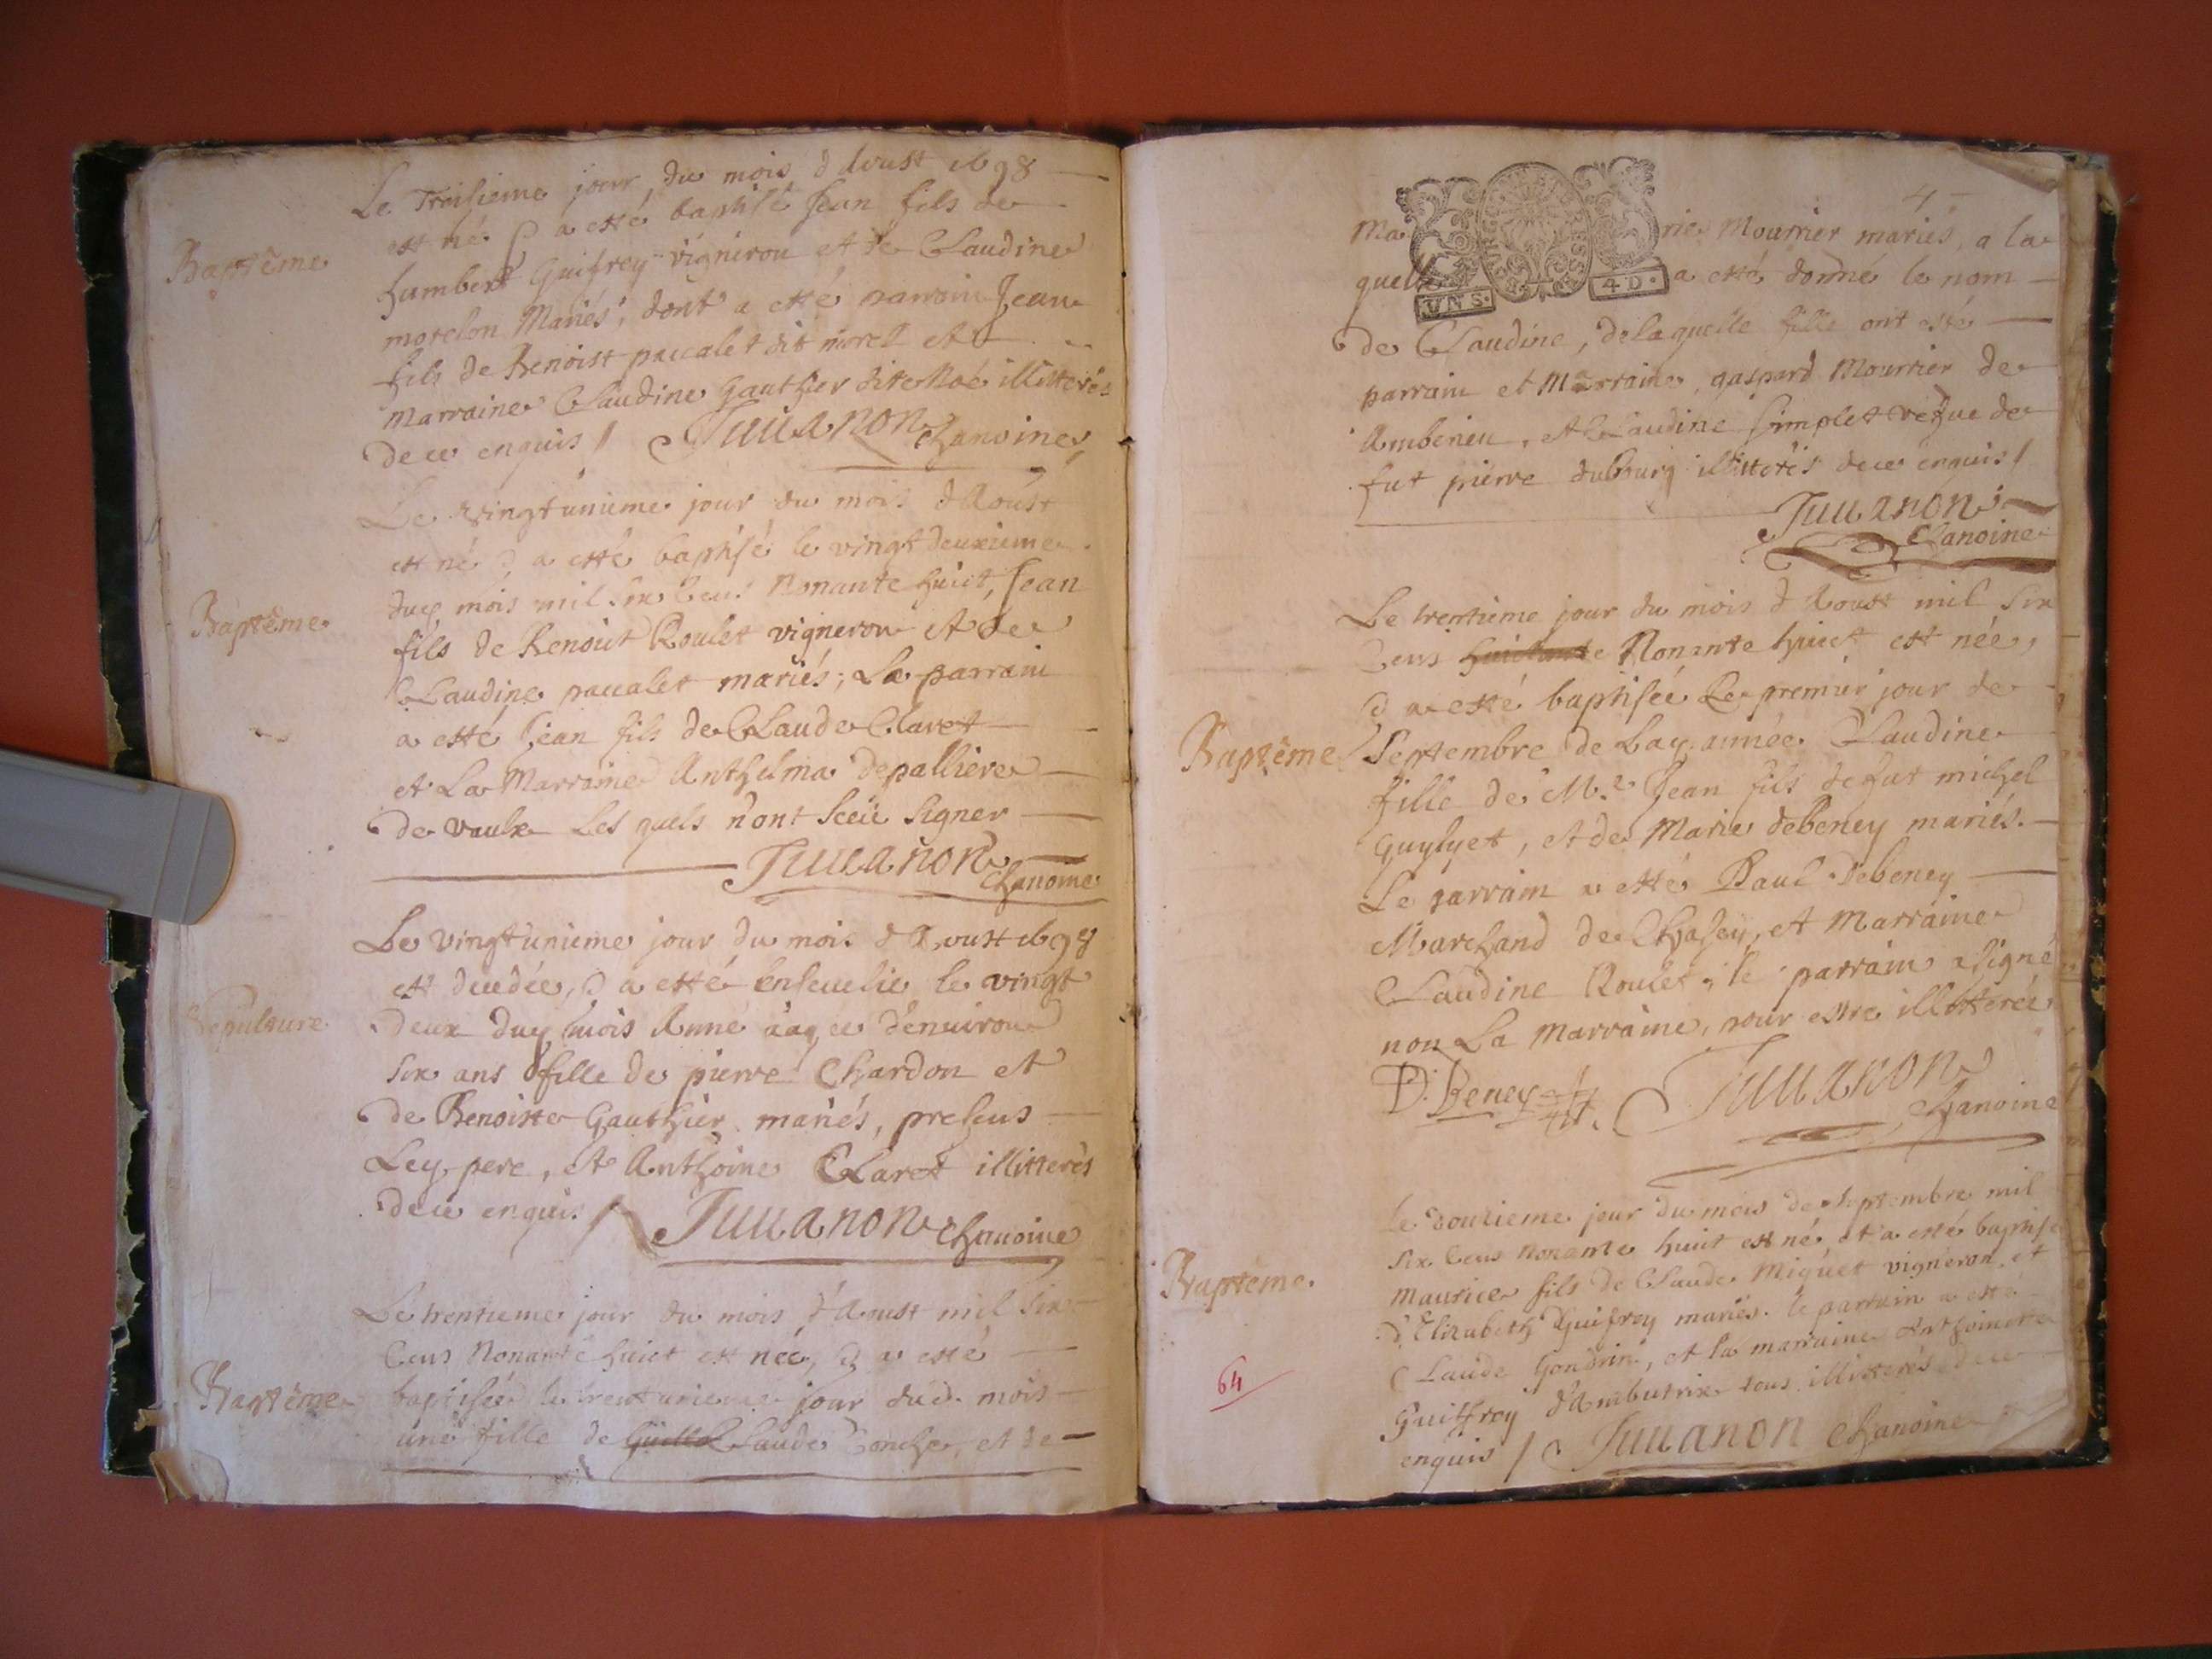 Le Troisieme jour du mois d'Aoust 1698
est né & a esté baptisé Jean fils de
Baptême
humbert Guifrey vigneron et de Claudine
morelon Mariés; dont a esté parrain Jean
fils de Benoist paccalet dit morel et
Marraine Claudine Gauthier dite Noé illitterés
de ce enquis / Juuanon chanoine
Le vingtunieme jour du mois d'Aoust
est né & a esté baptisé le vingtdeuxieme
Baptême
dud mois mil six Cens Nonante huict, Jean
fils de Benoist Roulet vigneron et de
Claudine paccalet mariés; Le parrain
a esté Jean fils de Claude Claret
et La Marraine Anthelma depalliere
de vaulx Lesquels n'ont sceü signer
Juuanon
chanoine
Le vingtunieme jour du mois d'Aoust 1698
est decedée, & a esté ensevelie le vingt
Sepulture
deux dud mois Anne aagée d'environ
six ans fille de pierre Chardon et
de Benoiste Gauthier mariés, presens
Led pere, et Anthoine Claret illitterés
de ce enquis / Juuanon chanoine
Le trentieme jour du mois d'Aoust mil six
Cens Nonante huict est née, & a esté
Baptême
baptisée le trenteunieme jour dud. mois
une fille de Claude Conche, et de
4
Ma rie Mourrier mariés, a la
quelle a esté donné le nom
UN S. 4 D.
de Claudine, de laquelle fille ont esté
parrain et Marraine, gaspard Mourrier de
Ambeneu, et Claudine simplet vefve de
fut pierre dubourg illitterés de ce enquis /
Juuanon
Chanoine
Le trentieme jour du mois d'Aoust mil six
Cens Nonante huict est née,
& a esté baptisée Le premier jour de
Baptême
Septembre de Lad. année Claudine
fille de Me Jean fils de fut michel
Guylyet, et de Marie debeney mariés.
Le parrain a esté Paul debeney
Marchand de Chasey, et Marraine
Claudine Roulet, le parrain a signé
non La Marraine, pour estre illitterée
D. Beney Juuanon
chanoine
le douzieme jour du mois de septembre mil
six Cens Nonante huict est né et a esté baptisé
Baptême
Maurice fils de Claude Miguet vigneron et
d'Elizabeth Guifrey mariés. le parrain a esté
Claude Gondrin, et la marraine Anthoinette
64
Guiffrey d'Ambutrix tous illitterés de ce
enquis / Juuanon Chanoine